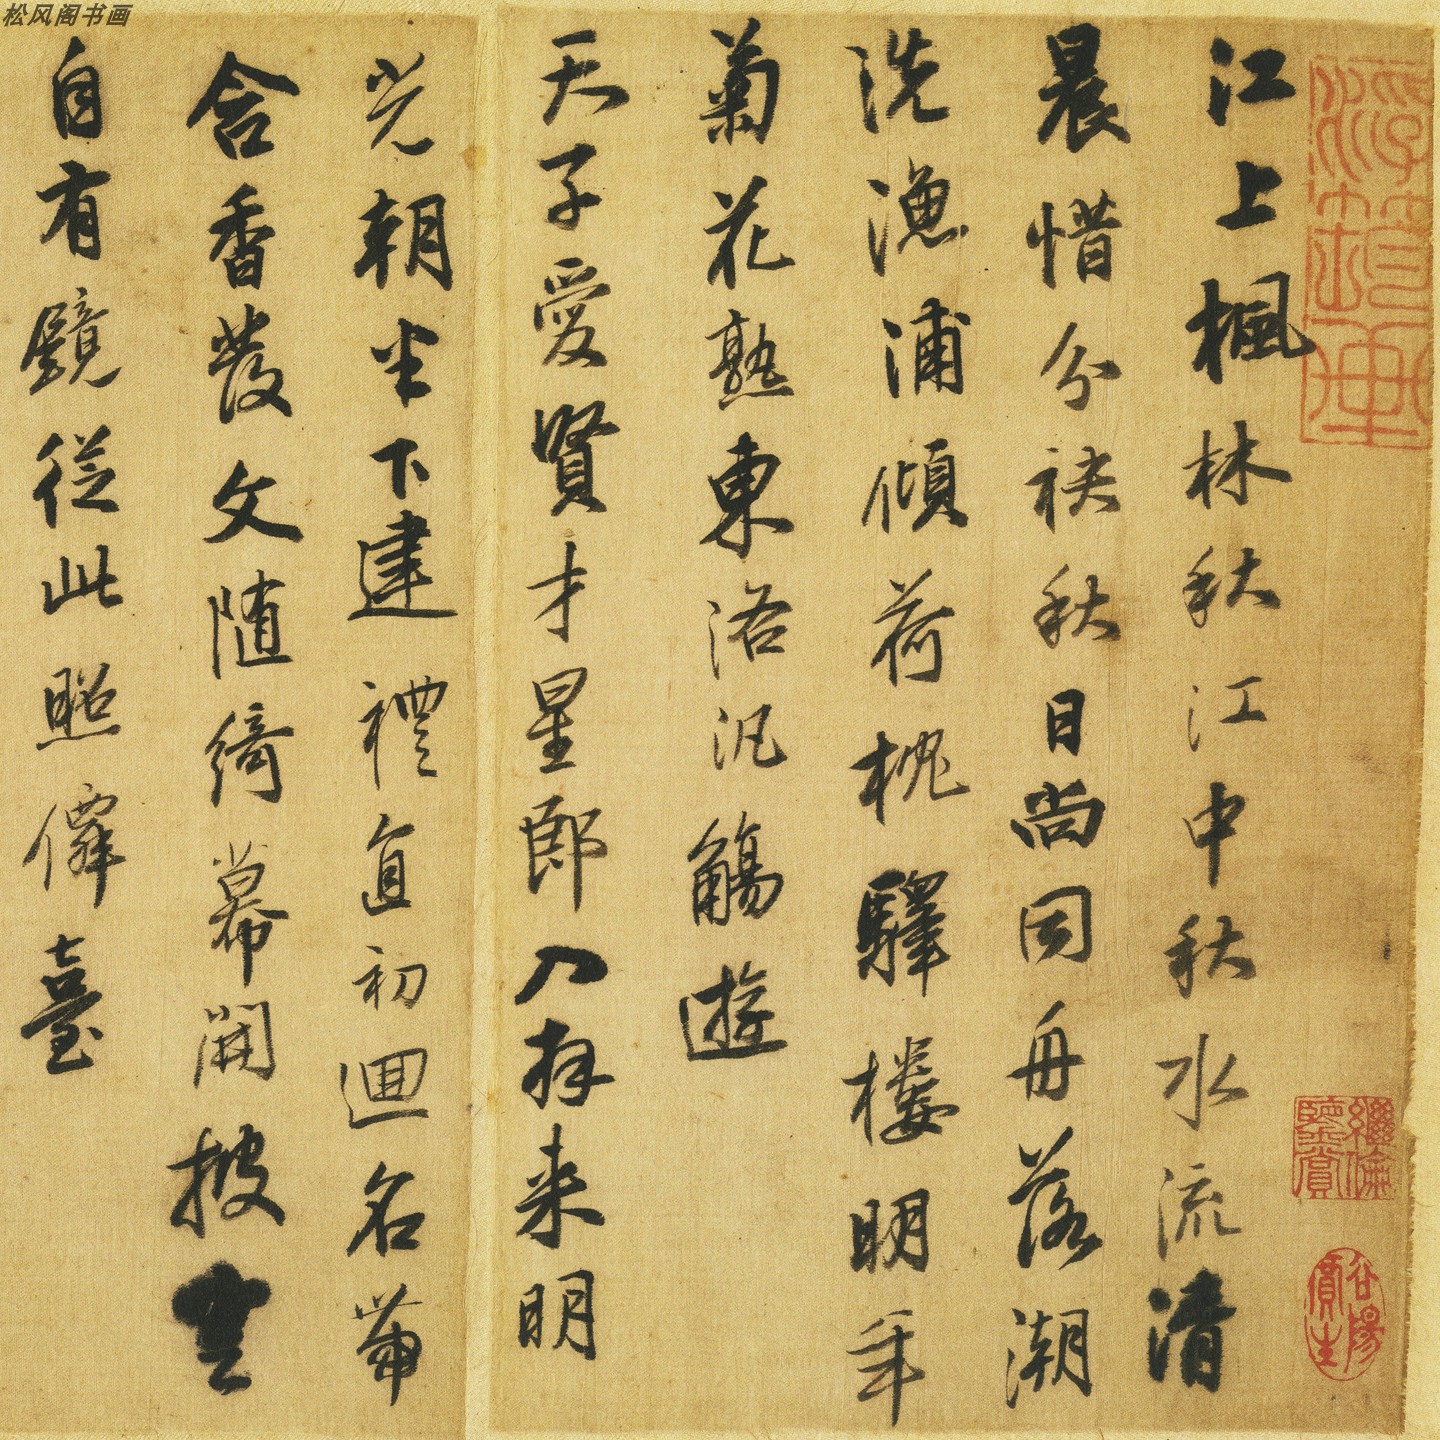 松风阁书画
江上楓林秋江中秋水流清
晨惜分袂秋日尚同舟落潮
洗漁浦傾荷枕驛樓明年
菊花熟東洛汎觴遊
天子愛賢才星郎入拜来明
光朝半下建禮直初迴名帶
含香發文随綺幕開披雲
自有鏡從此照僊臺